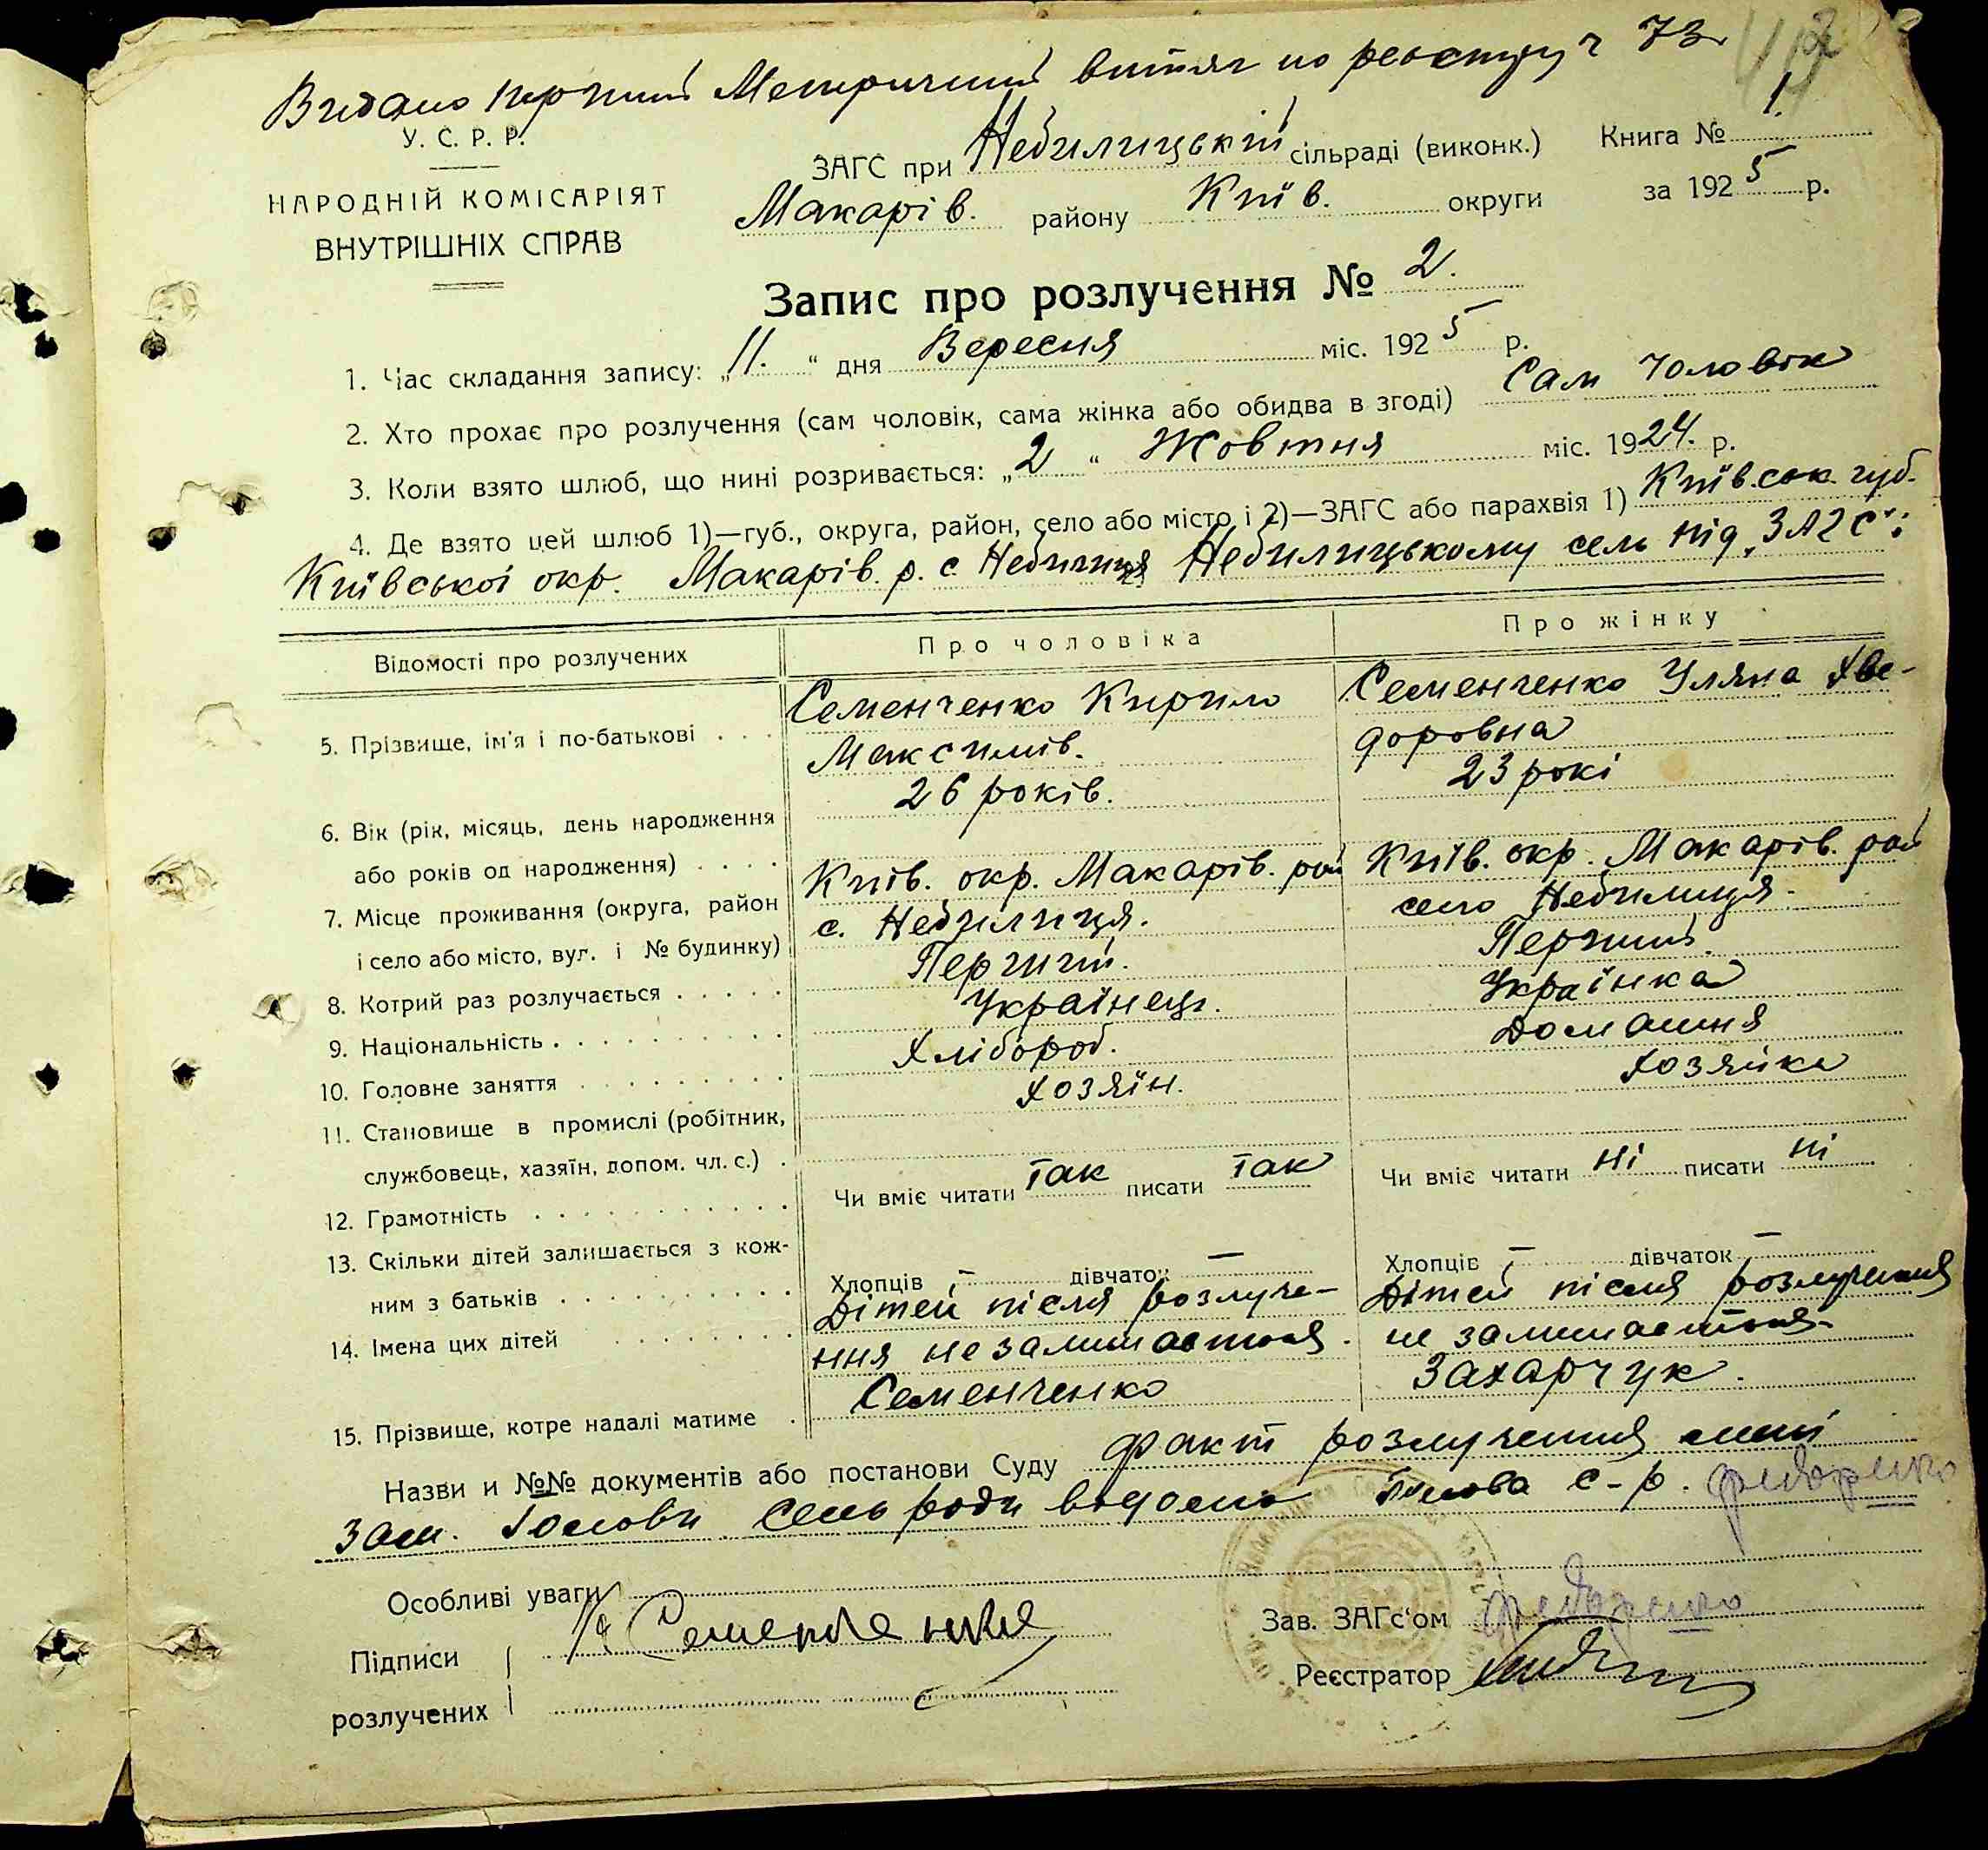 Видано перший Метричний витяг по реєстру ч 73
У. С. Р. Р.
НАРОДНІЙ КОМІСАРІЯТ
ВНУТРІШНІХ СПРАВ
ЗАГС при Небилицькій сільраді (виконк.) Книга № 1.
Макарів. району Київ. округи за 1925 р.
Запис про розлучення № 2.
1. Час складання запису: „11.“ дня Вересня міс. 1925 р.
2. Хто прохає про розлучення (сам чоловік, сама жінка або обидва в згоді) Сам чоловік
3. Коли взято шлюб, що нині розривається: „2“ Жовтня міс. 1924. р.
4. Де взято цей шлюб 1)—губ., округа, район, село або місто і 2)—ЗАГС або парахвія 1) Київ.ськ. губ.
Київської окр. Макарів. р. с. Небилиця Небилицькому сель під „ЗАГС“:
Відомості про розлучених
Про чоловіка
Про жінку
5. Прізвище, ім'я і по-батькові
Семенченко Кирило
Максимів.
Семенченко Уляна Хве-
доровна
6. Вік (рік, місяць, день народження
або років од народження)
26 років.
23 рокі
7. Місце проживання (округа, район
і село або місто, вул. і № будинку)
Київ. окр. Макарів. рай
с. Небилиця.
Київ. окр. Макарів. рай
село Небилиця.
8. Котрий раз розлучається
Перший.
Перший.
9. Національність
Українець.
Українка
10. Головне заняття
Хлібороб.
Домашня
11. Становище в промислі (робітник,
службовець, хазяїн, допом. чл. с.)
Хозяїн.
Хозяйка
12. Грамотність
Чи вміє читати так писати так
Чи вміє читати ні писати ні
13. Скільки дітей залишається з кож-
ним з батьків
Хлопців — дівчаток —
Хлопців — дівчаток —
14. Імена цих дітей
Дітей після розлуче-
ння не залишається.
Дітей після розлучення
не залишається
15. Прізвище, котре надалі матиме
Семенченко
Захарчук.
Назви и №№ документів або постанови Суду факт розлучення
Голови сельради Голова с-р.
Особливі уваги
Підписи
розлучених
Зав. ЗАГс'ом
Реєстратор